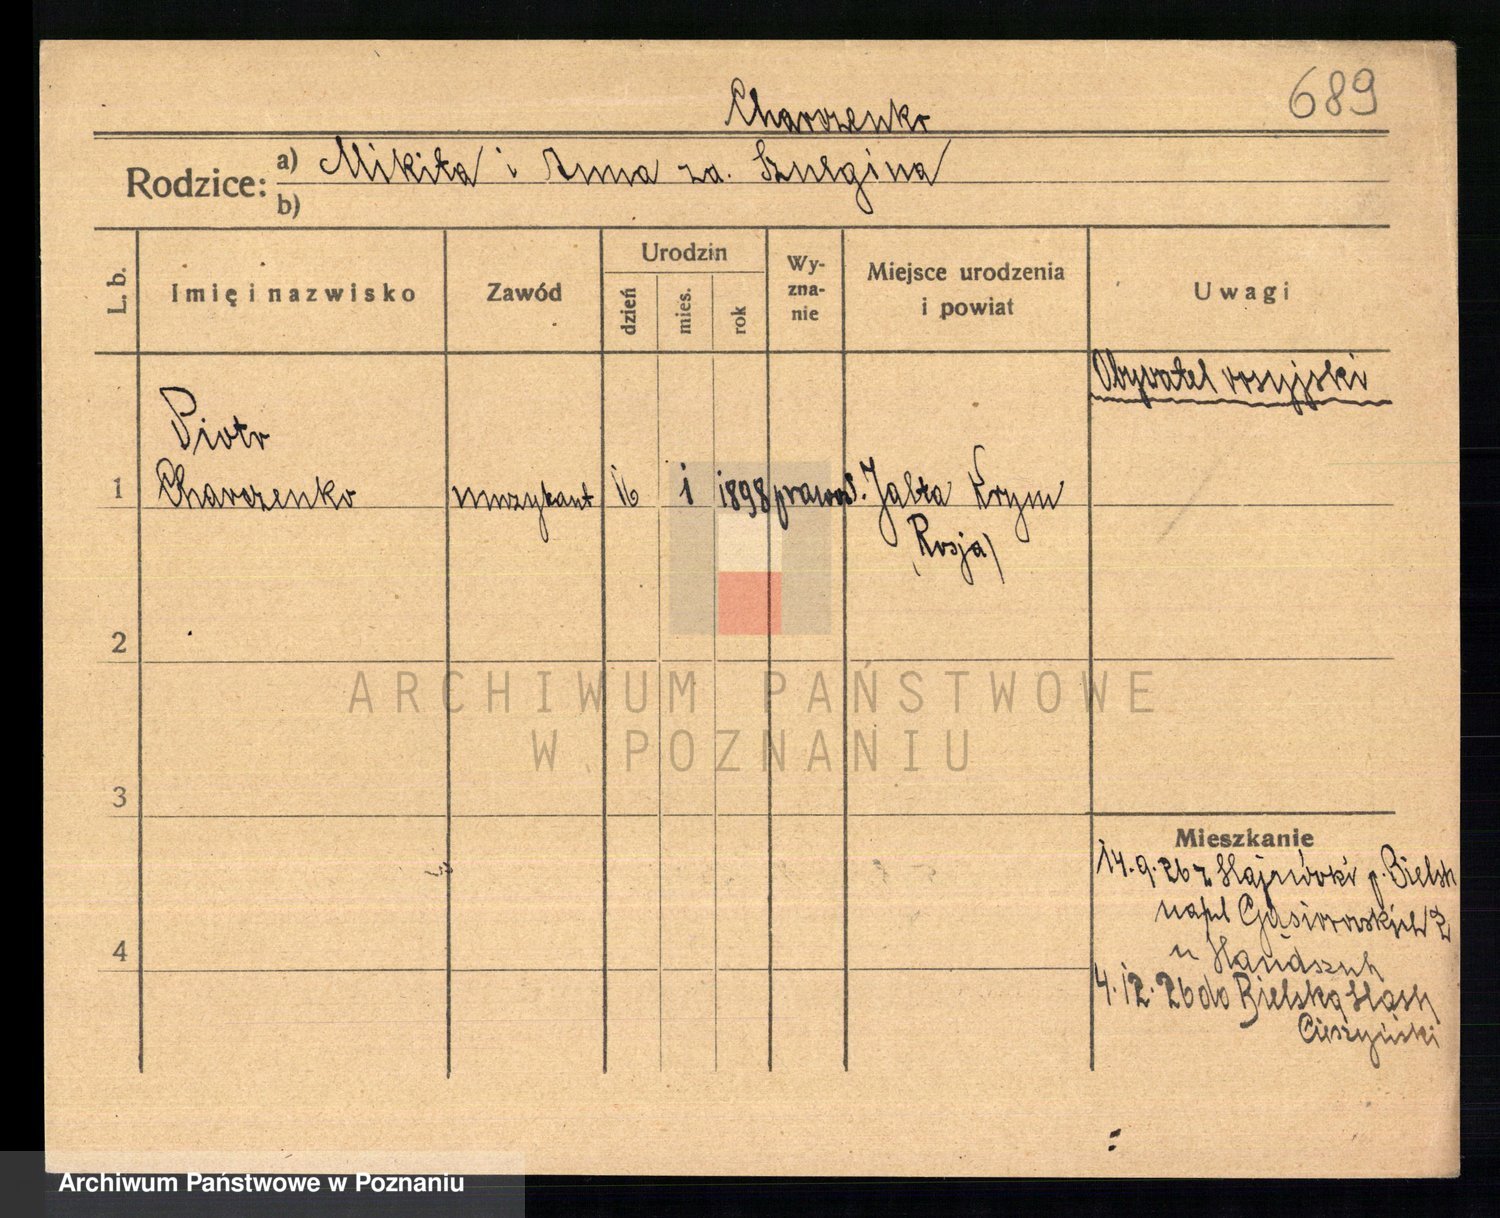 689
Charczenko
Rodzice: a) Mikita i Anna za. Szulgina
b)
L. b.
Imię i nazwisko
Zawód
Urodzin
dzień
mies.
rok
Wy-
zna-
nie
Miejsce urodzenia
i powiat
Uwagi
Obywatel rosyjski
Piotr
1 Charczenko muzykant 16 1 1898 prawosł. Jałta Krym
(Rosja)
2
3
4
Mieszkanie
14.9.26 z Hajnówki p. Bielsk
Gąsiorowskich 2
u
4.12.26 do Bielska Śląsk
Cieszyński
ARCHIWUM PAŃSTWOWE
W POZNANIU
Archiwum Państwowe w Poznaniu